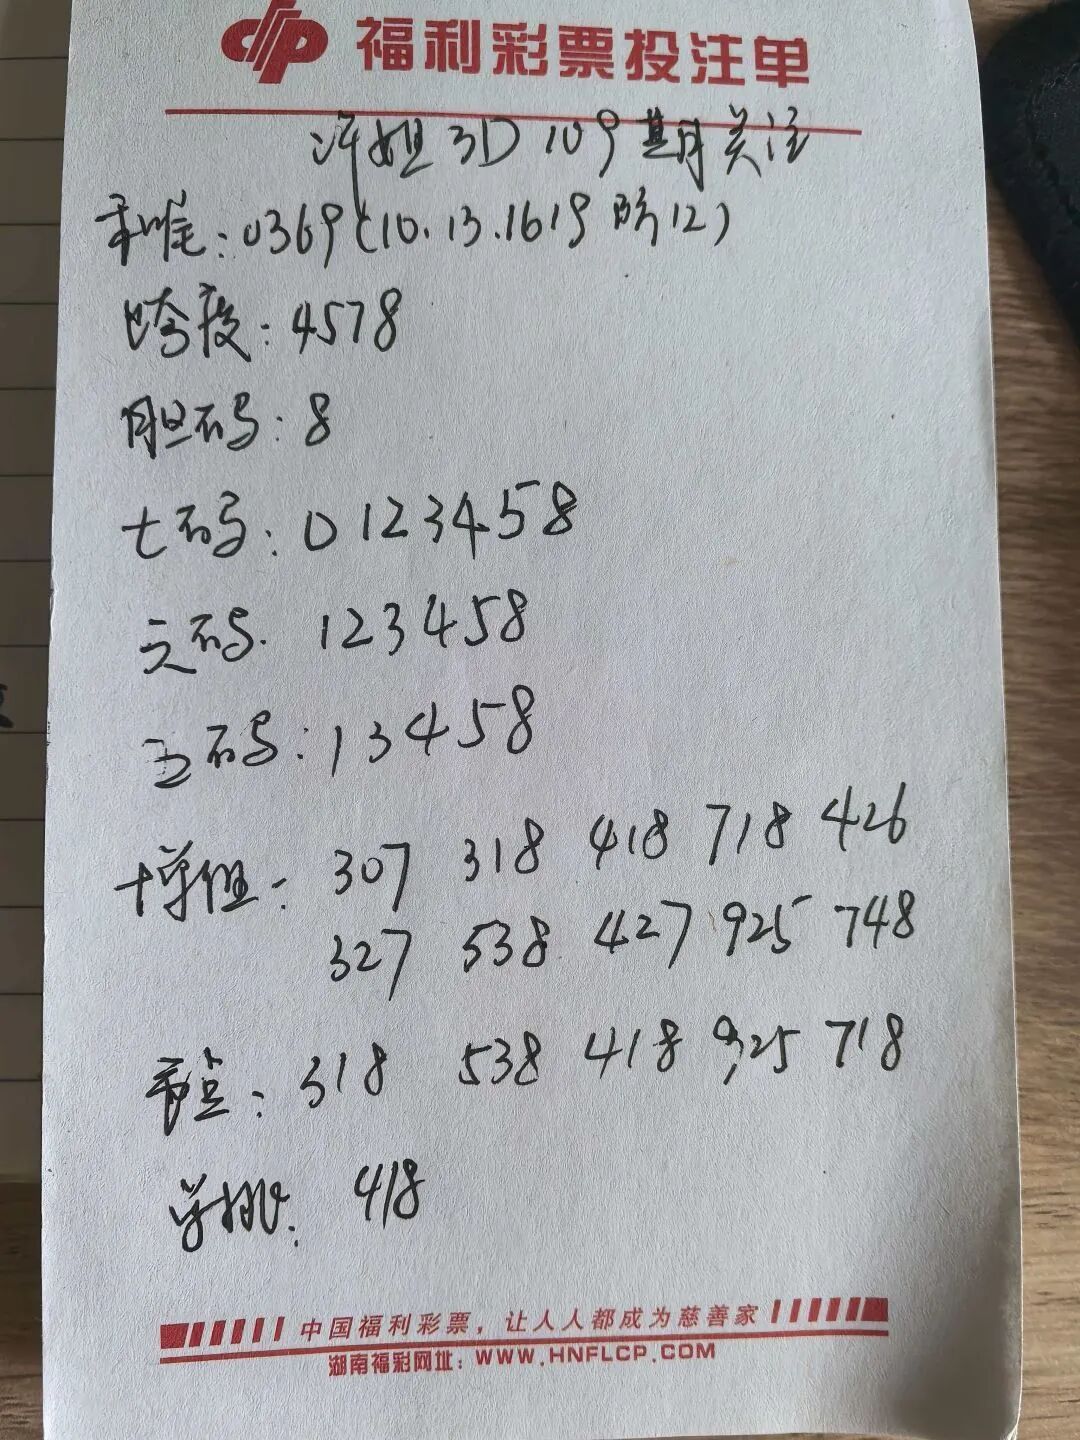 福利彩票投注单
许姐3D 109期关注
和尾:0369(10.13.1619防12)
跨度:4578
胆码:8
七码:0123458
六码. 123458
五码:13458
十单组: 307 318 418 718 426
327 538 427 925 748
重点: 318 538 418 925 718
单挑: 418
中国福利彩票，让人人都成为慈善家
湖南福彩网址：WWW.HNFLCP.COM